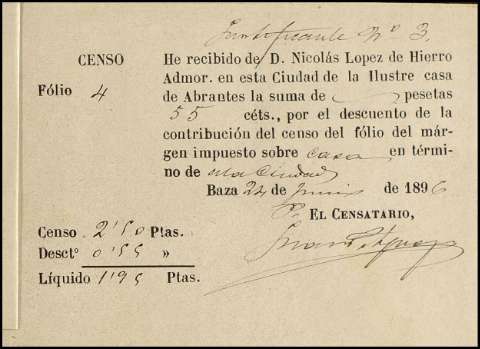 Justificante Nº 3.
CENSO
Fólio 4
He recibido de D. Nicolás Lopez de Hierro
Admor. en esta Ciudad de la Ilustre casa
de Abrantes la suma de pesetas
55 céts., por el descuento de la
contribución del censo del fólio del már-
gen impuesto sobre casa en térmi-
no de esta Ciudad
Baza 24 de Junio de 1896
EL CENSATARIO,
Censo 2'50 Ptas.
Desctº 0'55 »
Líquido 1'95 Ptas.